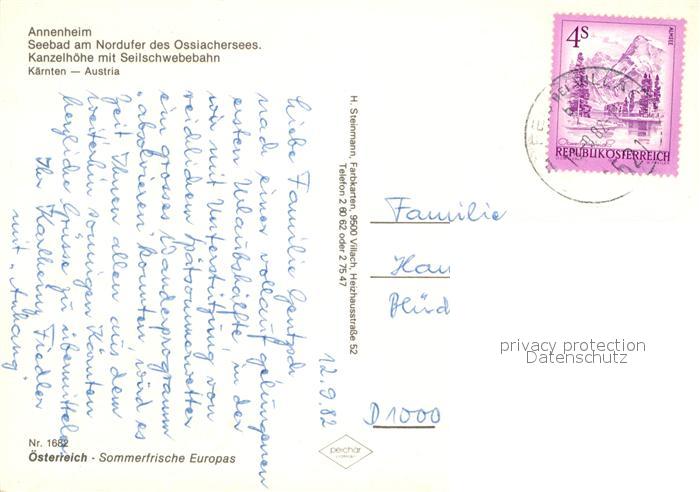 Annenheim
Seebad am Nordufer des Ossiachersees.
Kanzelhöhe mit Seilschwebebahn
Kärnten — Austria
4s
ALMSEE
REPUBLIK ÖSTERREICH
H. Steinmann, Farbkarten, 9500 Villach, Heizhausstraße 52
Telefon 2 80 62 oder 2 75 47
12.9.82
Liebe Familie
nach einer vollauf gelungenen
ersten Urlaubshälfte, in der
wir mit Unterstützung von
reichlichem Spätsommerwetter
ein grosses Wanderprogramm
"absolvieren" konnten, wird es
Zeit Ihnen allen aus dem
weiterhin sonnigen Kärnten
herzliche Grüsse zu übermitteln
Ihr Karlheinz Fiedler
mit "Anhang"
Familie
Hau
D 1000
privacy protection
Datenschutz
Nr. 1682
Österreich - Sommerfrische Europas